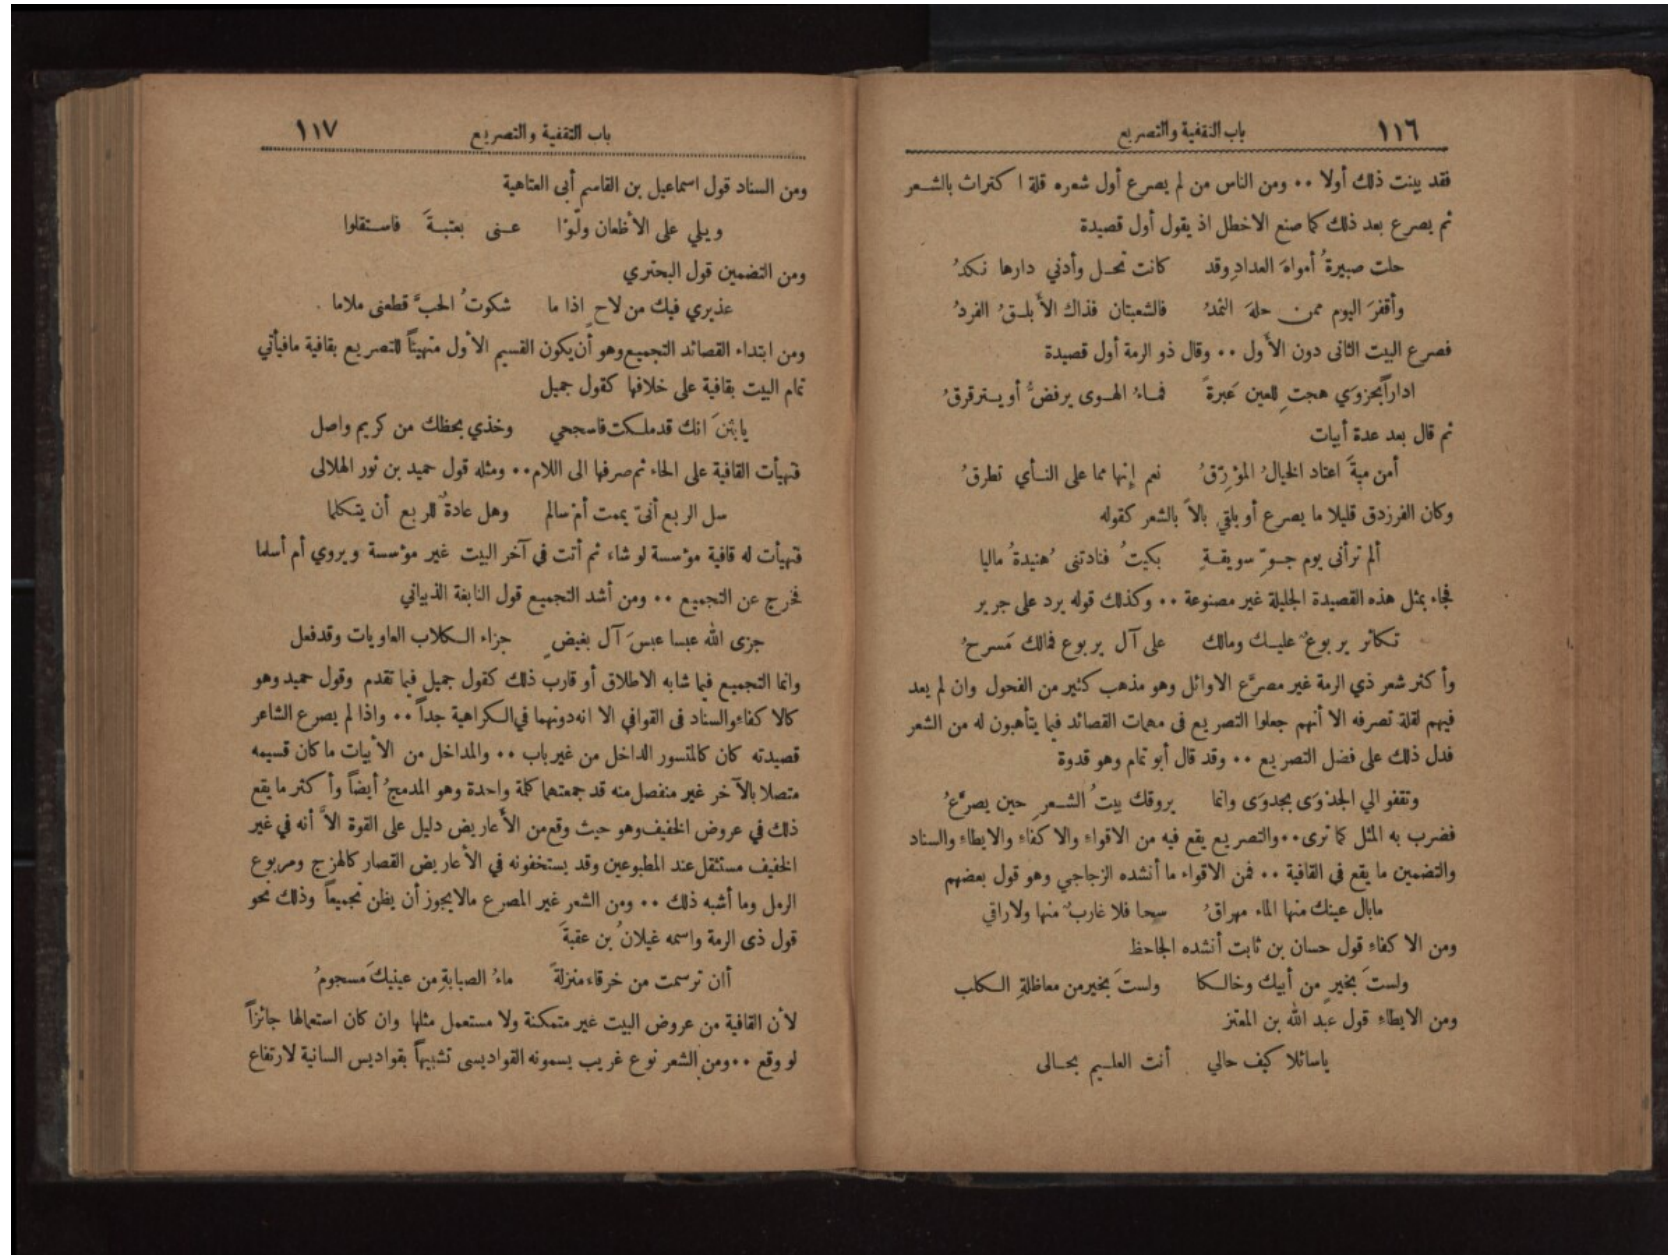 ١١٦ باب التقفية والتصريع
فقد بينت ذلك أولا ٠٠ ومن الناس من لم يصرع أول شعره قلة اكتراث بالشعر
ثم يصرع بعد ذلك كما صنع الاخطل اذ يقول أول قصيدة
حلت صبيرةُ أمواهَ العدادِ وقد كانت تحل وأدني دارها نكدُ
وأقفرَ اليوم ممن حلهَ الثمدُ فالشعبتان فذاك الأبلقُ الفردُ
فصرع البيت الثانى دون الأول ٠٠ وقال ذو الرمة أول قصيدة
اداراً بحزوَي هجتِ للعين عَبرةً فماءُ الهوى يرفضُّ أو يترقرقُ
ثم قال بعد عدة أبيات
أمن ميةَ اعتاد الخيالُ المؤرّقُ نعم إنها مما على النأي تطرقُ
وكان الفرزدق قليلا ما يصرع أو يلقي بالاً بالشعر كقوله
ألم ترأنى يوم جوِّ سويقةٍ بكيتُ فنادتنى هُنيدةُ ماليا
فجاء بمثل هذه القصيدة الجليلة غير مصنوعة ٠٠ وكذلك قوله يرد على جرير
تكاثر يربوعٌ عليك ومالك على آل يربوع فمالك مَسرحُ
وأكثر شعر ذي الرمة غير مصرَّع الاوائل وهو مذهب كثير من الفحول وان لم يعد
فيهم لقلة تصرفه الا أنهم جعلوا التصريع فى مهمات القصائد فيما يتأهبون له من الشعر
فدل ذلك على فضل التصريع ٠٠ وقد قال أبو تمام وهو قدوة
وتقفو الي الجدْوَى بجدوَى وانما يروقك بيتُ الشعرِ حين يصرَّعُ
فضرب به المثل كما ترى ٠٠ والتصريع يقع فيه من الاقواء والاكفاء والايطاء والسناد
والتضمين ما يقع فى القافية ٠٠ فمن الاقواء ما أنشده الزجاجي وهو قول بعضهم
مابال عينك منها الماء مهراقُ سحا فلا غاربٌ منها ولاراقي
ومن الاكفاء قول حسان بن ثابت أنشده الجاحظ
ولستَ بخيرٍ من أبيك وخالكا ولستَ بخيرمن معاظلةِ الكلب
ومن الايطاء قول عبد الله بن المعتز
ياسائلا كيف حالي أنت العليم بحالى
باب التقفية والتصريع ١١٧
ومن السناد قول اسماعيل بن القاسم أبى العتاهية
ويلي على الأظعان ولّوْا عنى بعتبةَ فاستقلوا
ومن التضمين قول البحتري
عذيري فيك من لاحٍ اذا ما شكوتُ الحبَّ قطعنى ملاما
ومن ابتداء القصائد التجميع وهو أن يكون القسيم الأول متهيئاً للتصريع بقافية مافيأتي
تمام البيت بقافية على خلافها كقول جميل
يابثنَ انك قدملكت فاسجحي وخذي بحظك من كريم واصل
فتهيأت القافية على الحاء ثم صرفها الى اللام ٠٠ ومثله قول حميد بن ثور الهلالى
سل الربع أنىّ يممت أمّ سالم وهل عادةٌ للربع أن يتكلما
فتهيأت له قافية مؤسسة لو شاء ثم أتت في آخر البيت غير مؤسسة ويروي أم أسلما
فخرج عن التجميع ٠٠ ومن أشد التجميع قول النابغة الذبياني
جزى الله عبسا عبسَ آل بغيضٍ جزاء الكلاب العاويات وقدفعل
وانما التجميع فيما شابه الاطلاق أو قارب ذلك كقول جميل فيما تقدم وقول حميد وهو
كالاكفاء والسناد فى القوافي الا انه دونهما في الكراهية جداً ٠٠ واذا لم يصرع الشاعر
قصيدته كان كالمتسور الداخل من غير باب ٠٠ والمداخل من الأبيات ما كان قسيمه
متصلا بالآخر غير منفصل منه قد جمعتهما كلمة واحدة وهو المدمجُ أيضاً وأكثر ما يقع
ذلك في عروض الخفيف وهو حيث وقع من الأعاريض دليل على القوة الاَّ أنه في غير
الخفيف مستثقل عند المطبوعين وقد يستخفونه في الأعاريض القصار كالهزج ومربوع
الرمل وما أشبه ذلك ٠٠ ومن الشعر غير المصرع مالايجوز أن يظن تجميعاً وذلك نحو
قول ذى الرمة واسمه غيلانُ بن عقبةَ
أان ترسمت من خرقاء منزلةً ماءُ الصبابةِ من عينيكَ مسجومُ
لأن القافية من عروض البيت غير متمكنة ولا مستعمل مثلها وان كان استعمالها جائزاً
لو وقع ٠٠ ومن الشعر نوع غريب يسمونه القواديسى تشبيهاً بقواديس السانية لارتفاع